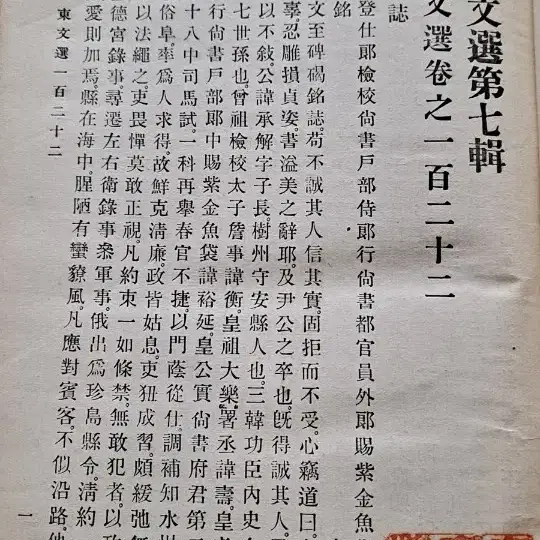 文選第七輯
文選卷之一百二十二
誌
登仕郎檢校尙書戶部侍郎行尙書都官員外郎賜紫金魚
銘
文至碑碣銘誌。苟不誠其人信其實。固拒而不受。心竊道曰。
辜。忍雕損貞姿。書溢美之辭耶。及尹公之卒也。旣得誠其人。
以不敍。公諱承解字子長。樹州守安縣人也。三韓功臣內史
七世孫也。曾祖檢校太子詹事諱衡。皇祖大樂署丞諱壽。皇
行尙書戶部郎中賜紫金魚袋諱裕延。皇公實尙書府君第
十八中司馬試。一科再擧春官不捷。以門蔭從仕。調補知水
俗阜。率爲人求得。故鮮克淸廉。政皆姑息。吏狃成習。頗緩弛
以法繩之。吏畏憚莫敢正視。凡約束一如條禁。無敢犯者。以
德宮錄事。尋遷左右衛錄事叅軍事。俄出爲珍島縣令。淸約
愛則加焉。縣在海中。腥陋有蠻獠風。凡應對賓客。不似沿路。
東文選一百二十二
一